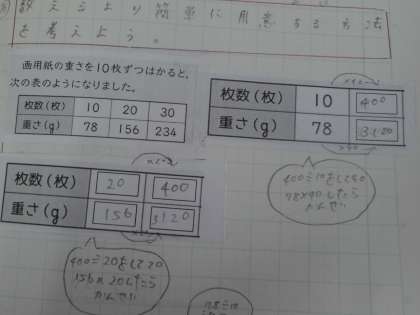 数えるより簡単に用意する方法
を考えよう。
画用紙の重さを10枚ずつはかると,
次の表のようになりました。
枚数(枚) 10 20 30
重さ(g) 78 156 234
枚数(枚) 10 400
重さ(g) 78 3120
400÷10をして40
78×40したら
かんせい
枚数(枚) 20 400
重さ(g) 156 3120
400÷20をして20
156×20したら
かんせい